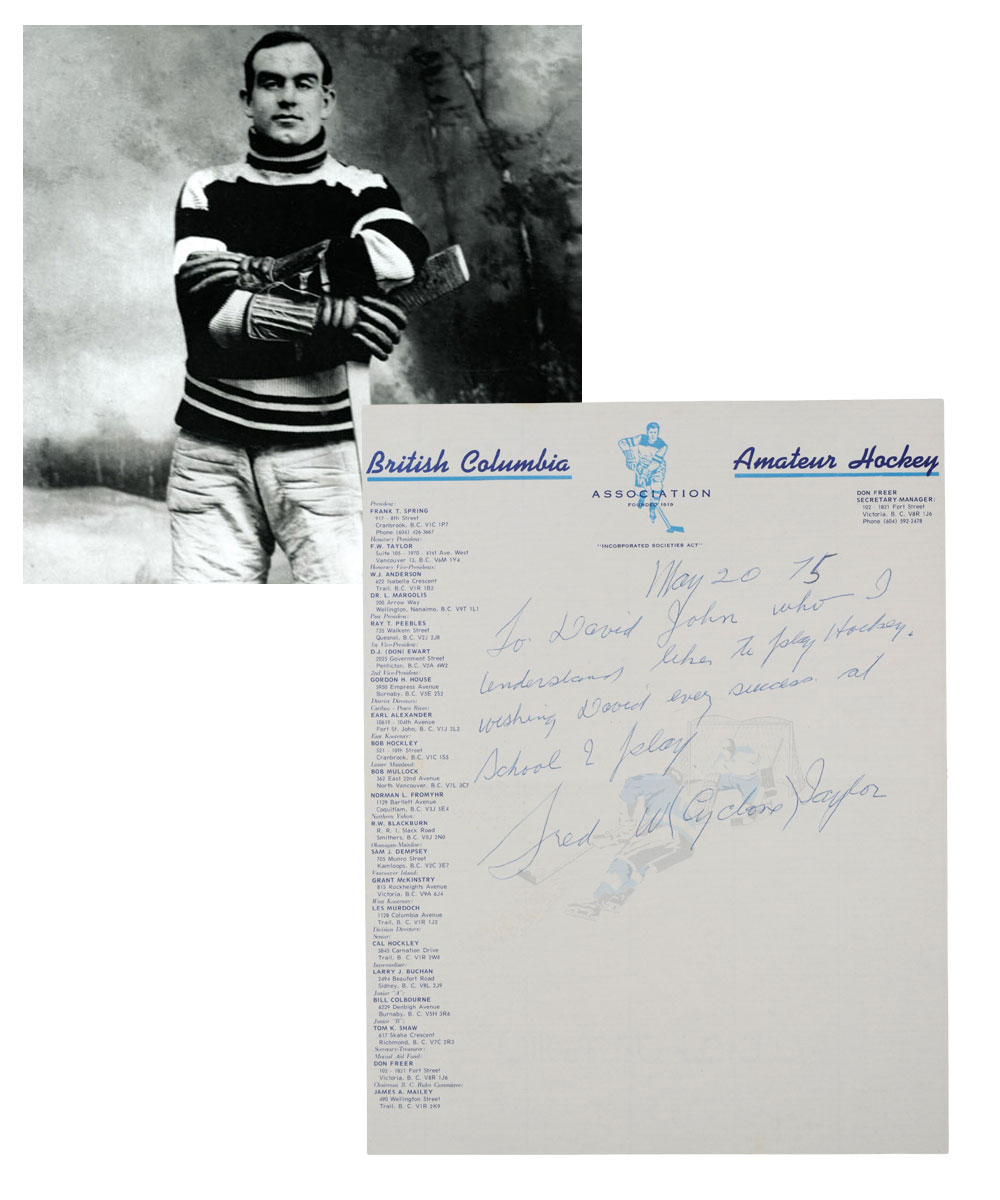 British Columbia
Amateur Hockey
ASSOCIATION
FOUNDED 1919
"INCORPORATED SOCIETIES ACT"
DON FREER
SECRETARY MANAGER:
102 - 1821 Fort Street
Victoria, B.C. V8R 1J6
Phone (604) 592-2478
President:
FRANK T. SPRING
917 - 8th Street
Cranbrook, B.C. V1C 1P7
Phone (604) 426-3667
Honorary President:
F.W. TAYLOR
Suite 105 - 1970 - 61st Ave. West
Vancouver 13, B.C. V6M 1Y4
Honorary Vice-Presidents:
W.J. ANDERSON
622 Isabella Crescent
Trail, B.C. V1R 1B2
DR. L. MARGOLIS
200 Arrow Way
Wellington, Nanaimo, B.C. V9T 1L1
Past President:
RAY T. PEEBLES
735 Walkem Street
Quesnel, B.C. V2J 2J8
1st Vice-President:
D.J. (DON) EWART
2025 Government Street
Penticton, B.C. V2A 4W2
2nd Vice-President:
GORDON H. HOUSE
5950 Empress Avenue
Burnaby, B.C. V5E 2S2
District Directors:
Cariboo - Peace River:
EARL ALEXANDER
10619 - 104th Avenue
Fort St. John, B.C. V1J 2L2
East Kootenay:
BOB HOCKLEY
521 - 10th Street
Cranbrook, B.C. V1C 1S5
Lower Mainland:
BOB MULLOCK
362 East 22nd Avenue
North Vancouver, B.C. V7L 3C7
NORMAN L. FROMYHR
1129 Bartlett Avenue
Coquitlam, B.C. V3J 5E4
Northern Yukon:
R.W. BLACKBURN
R. R. 1, Slack Road
Smithers, B.C. V0J 2N0
Okanagan-Mainline:
SAM J. DEMPSEY
705 Munro Street
Kamloops, B.C. V2C 3E7
Vancouver Island:
GRANT McKINSTRY
815 Rockheights Avenue
Victoria, B.C. V9A 6J4
West Kootenay:
LES MURDOCH
1128 Columbia Avenue
Trail, B. C. V1R 1J3
Division Directors:
Senior:
CAL HOCKLEY
3845 Carnation Drive
Trail, B. C. V1R 2W8
Intermediate:
LARRY J. BUCHAN
2494 Beaufort Road
Sidney, B.C. V8L 2J9
Junior "A":
BILL COLBOURNE
6229 Denbigh Avenue
Burnaby, B.C. V5H 3R6
Junior "B":
TOM K. SHAW
617 Skaha Crescent
Richmond, B. C. V7C 2R3
Secretary-Treasurer:
Mutual Aid Fund:
DON FREER
102 - 1821 Fort Street
Victoria, B.C. V8R 1J6
Chairman B. C. Rules Committee:
JAMES A. MAILEY
490 Wellington Street
Trail, B. C. V1R 2K9
May 20 75
To David John who I
understand likes to play Hockey.
wishing David every success at
School & play
Fred W (Cyclone) Taylor